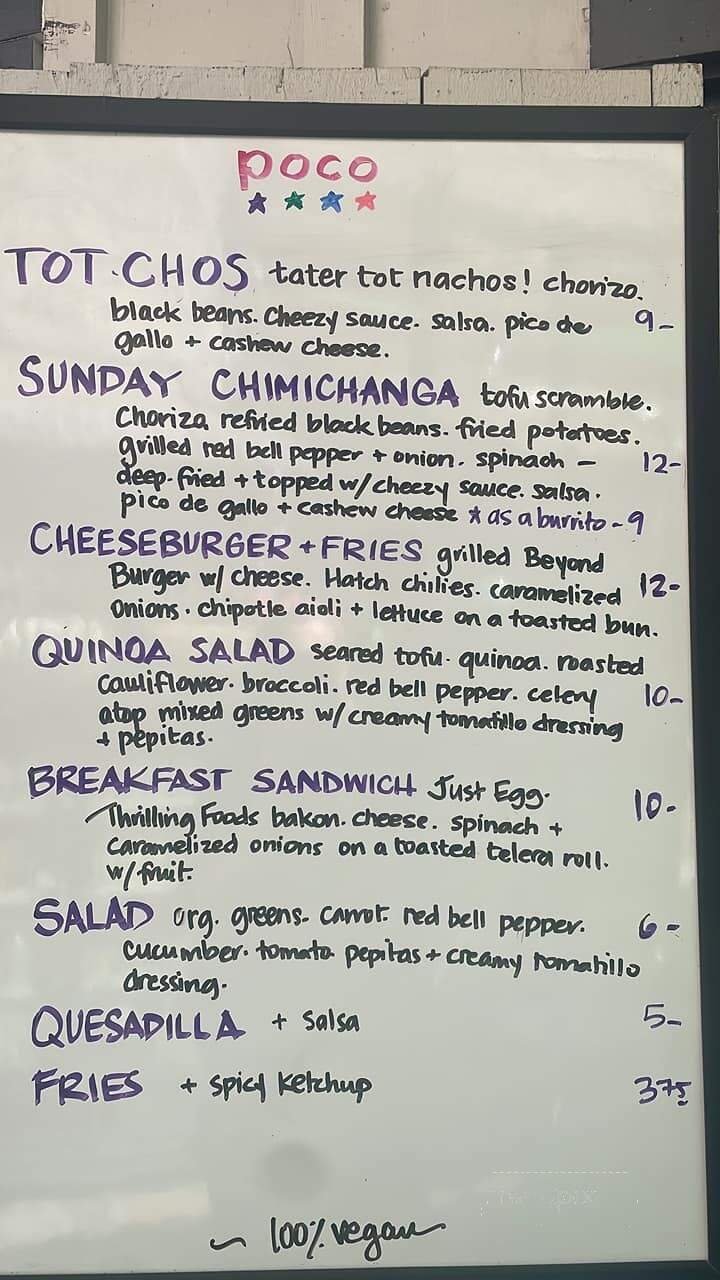 poco
TOT·CHOS tater tot nachos! chorizo.
black beans. cheezy sauce. salsa. pico de 9-
gallo + cashew cheese.
SUNDAY CHIMICHANGA tofu scramble.
Choriza refried black beans. fried potatoes.
grilled red bell pepper + onion. spinach - 12-
deep-fried + topped w/ cheezy sauce. salsa.
pico de gallo + cashew cheese * as a burrito - 9
CHEESEBURGER + FRIES grilled Beyond
Burger w/ cheese. Hatch chilies. caramelized 12-
onions. chipotle aioli + lettuce on a toasted bun.
QUINOA SALAD seared tofu. quinoa. roasted
cauliflower. broccoli. red bell pepper. celery 10-
atop mixed greens w/ creamy tomatillo dressing
+ pepitas.
BREAKFAST SANDWICH Just Egg. 10-
Thrilling Foods bakon. cheese. spinach +
caramelized onions on a toasted telera roll.
w/ fruit.
SALAD org. greens. carrot. red bell pepper. 6-
cucumber. tomato. pepitas + creamy tomatillo
dressing.
QUESADILLA + salsa 5-
FRIES + spicy ketchup 375
~ 100% vegan